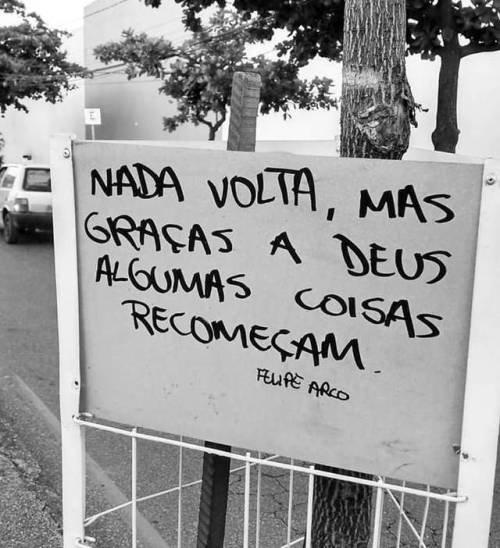 E
NADA VOLTA, MAS
GRAÇAS A DEUS
ALGUMAS COISAS
RECOMEÇAM.
FELIPE ARCO